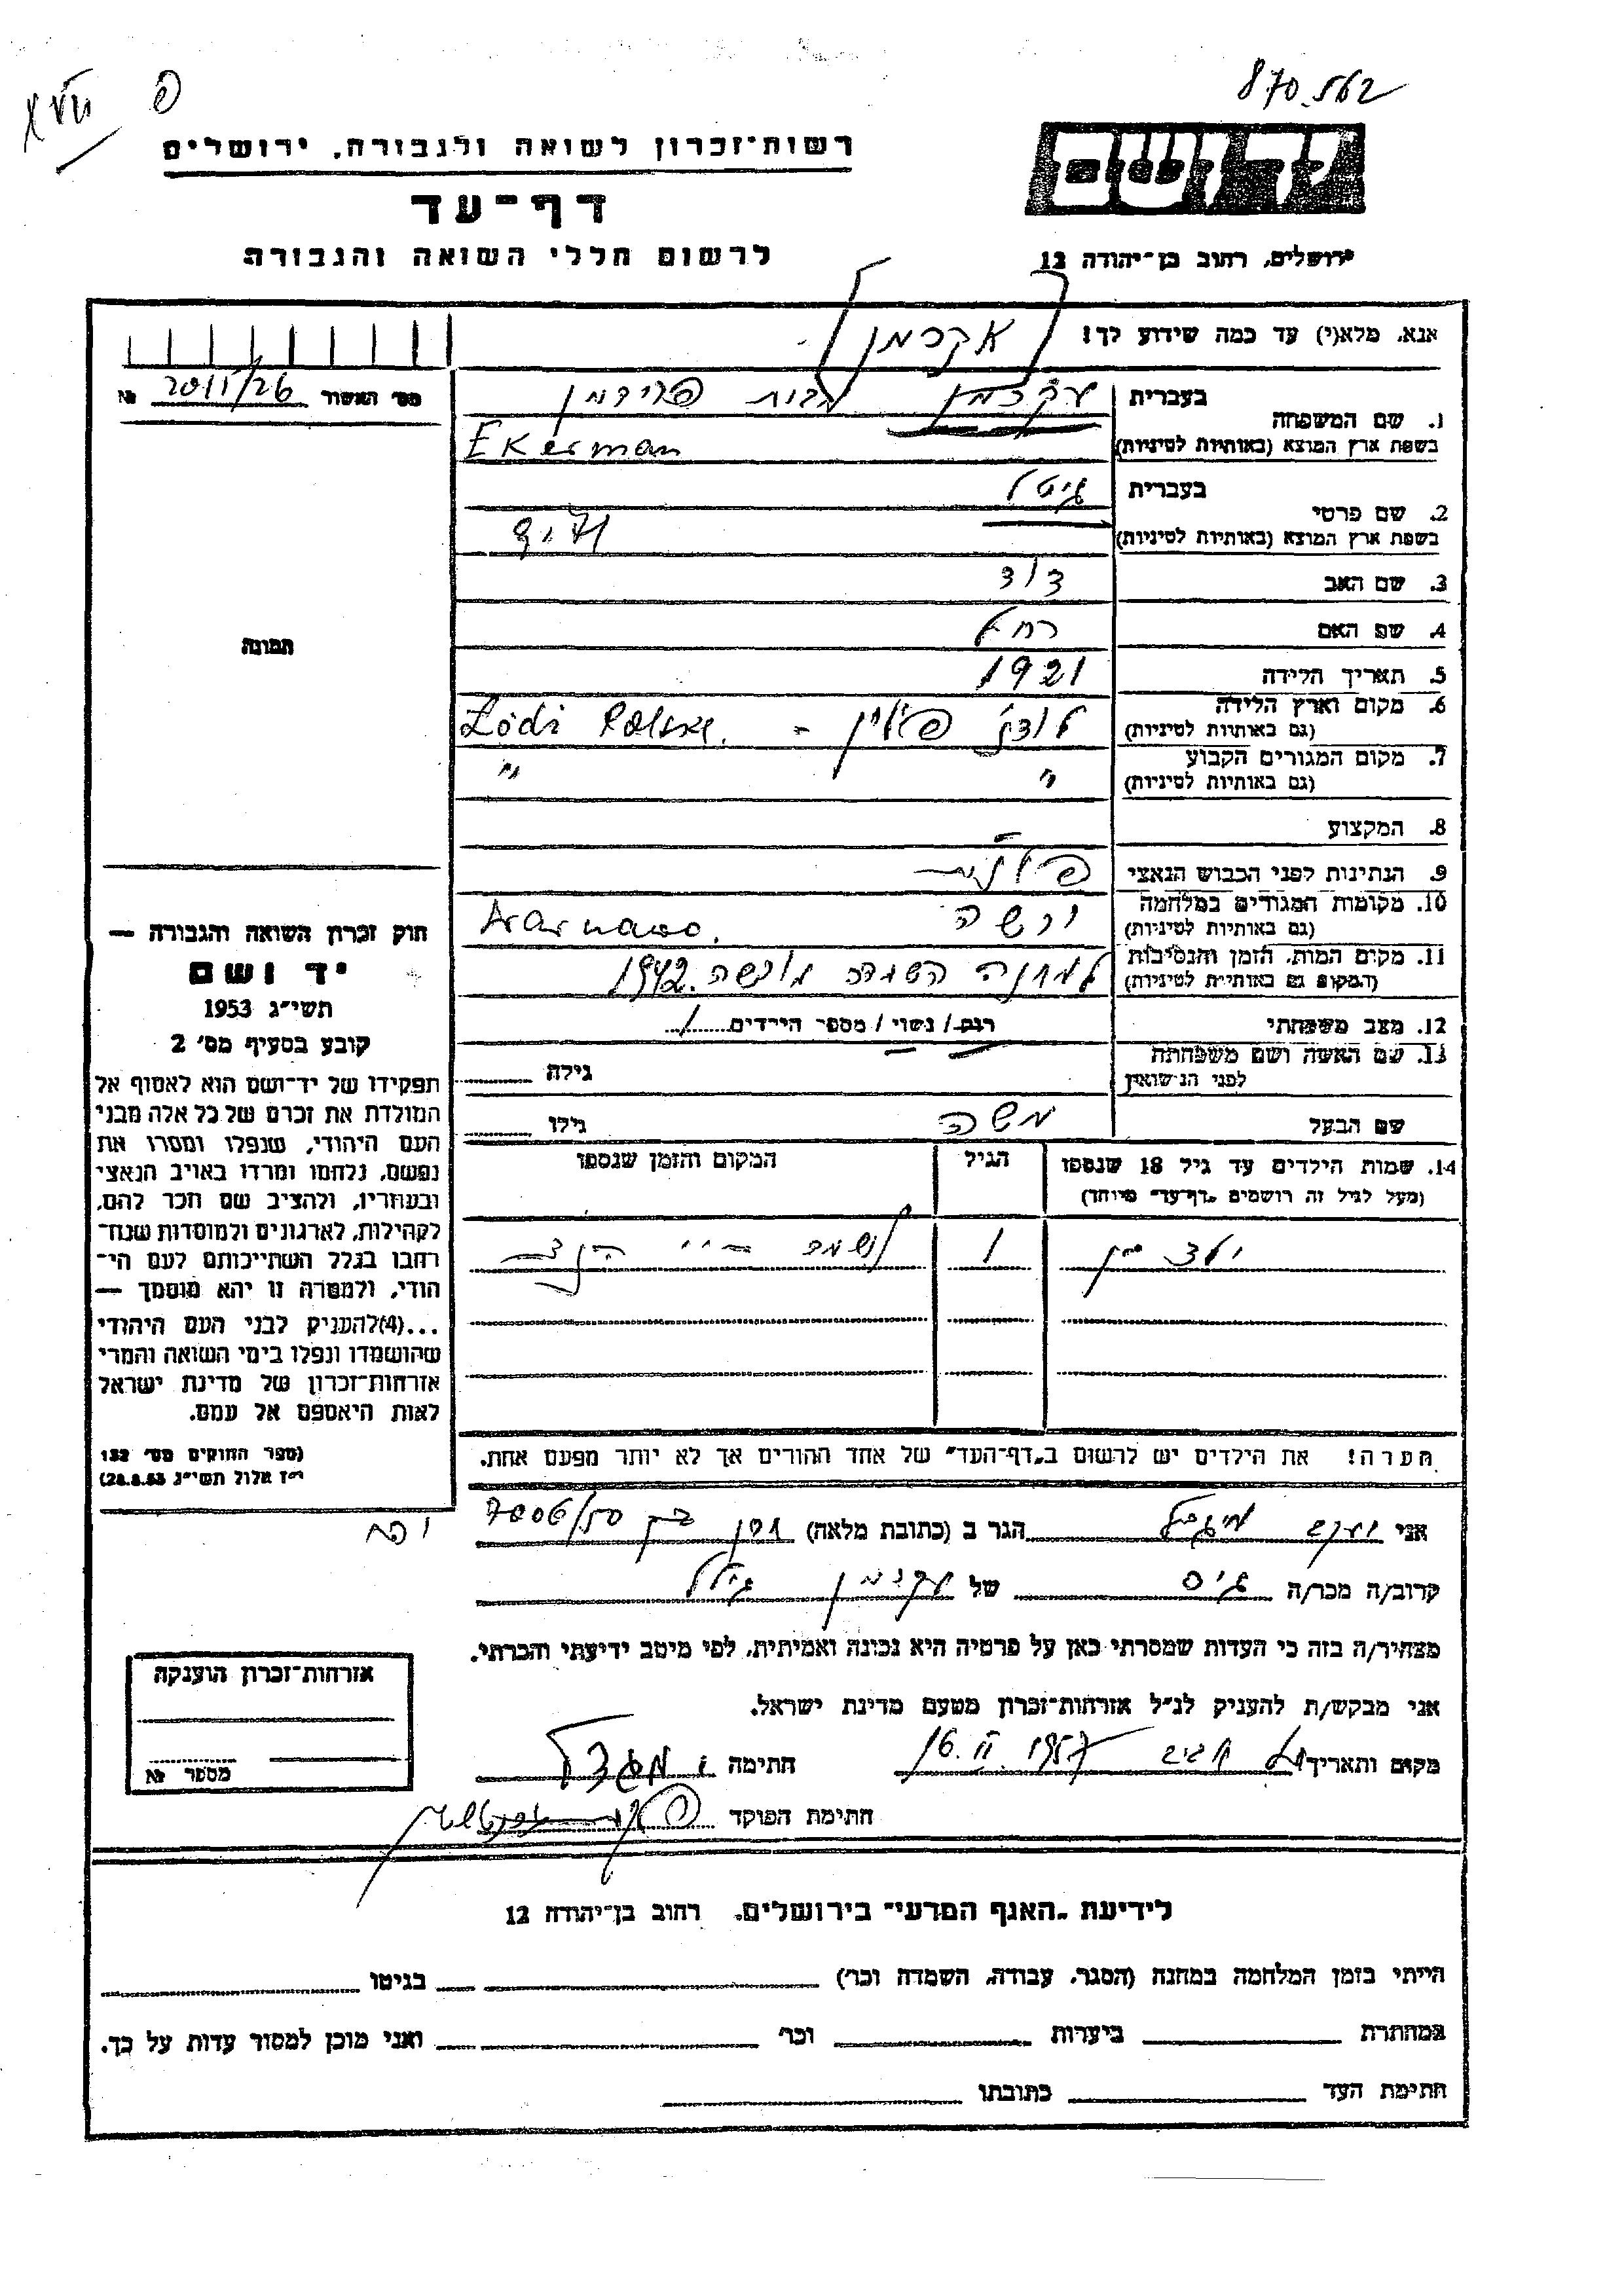 870.562
XVII פ
רשות־זכרון לשואה ולגבורה, ירושלים
יד ושם
דף־עד
לרשום חללי השואה והגבורה
ירושלים, רחוב בן־יהודה 12
אנא, מלא(י) עד כמה שידוע לך!
אקרמן
מס׳ האשור 2011/26 №
1. שם המשפחה
בעברית עקרמן לבית פרידמן
בשפת ארץ המוצא (באותיות לטיניות) Ekerman
2. שם פרטי
בעברית גיטל
בשפת ארץ המוצא (באותיות לטיניות)
3. שם האב דוד
4. שם האם רחל
5. תאריך הלידה 1921
6. מקום וארץ הלידה
(גם באותיות לטיניות) לודז׳ פולין - Lódi Polska.
7. מקום המגורים הקבוע
(גם באותיות לטיניות) " "
8. המקצוע -
9. הנתינות לפני הכבוש הנאצי פולנית
10. מקומות המגורים במלחמה
(גם באותיות לטיניות) ורשה
11. מקום המות, הזמן והנסיבות
(המקום גם באותיות לטיניות) למחנה השמדה מורשה. 1942
12. מצב משפחתי רווק / נשוי / מספר הילדים 1
13. שם האשה ושם משפחתה
לפני הנישואין
גילה
שם הבעל משה
גילו
תמונה
14. שמות הילדים עד גיל 18 שנספו
(מעל לגיל זה רושמים „דף־עד״ מיוחד)
הגיל
המקום והזמן שנספו
ילד 1
הערה! את הילדים יש לרשום ב„דף־העד״ של אחד ההורים אך לא יותר מפעם אחת.
חוק זכרון השואה והגבורה —
יד ושם
תשי״ג 1953
קובע בסעיף מס׳ 2
תפקידו של יד־ושם הוא לאסוף אל
המולדת את זכרם של כל אלה מבני
העם היהודי, שנפלו ומסרו את
נפשם, נלחמו ומרדו באויב הנאצי
ובעוזריו, ולהציב שם וזכר להם,
לקהילות, לארגונים ולמוסדות שנח־
רבו בגלל השתייכותם לעם הי־
הודי, ולמטרה זו יהא מוסמך —
...(4)להעניק לבני העם היהודי
שהושמדו ונפלו בימי השואה והמרי
אזרחות־זכרון של מדינת ישראל
לאות היאספם אל עמם.
(ספר החוקים מס׳ 132
י״ז אלול תשי״ג 28.8.53)
אני הגר ב (כתובת מלאה) 7006/50
יפו
קרוב/ה מכר/ה גיס של עקרמן גיטל
מצהיר/ה בזה כי העדות שמסרתי כאן על פרטיה היא נכונה ואמיתית, לפי מיטב ידיעתי והכרתי.
אני מבקש/ת להעניק לנ״ל אזרחות־זכרון מטעם מדינת ישראל.
מקום ותאריך תל אביב 16. II 1957 חתימה
חתימת הפוקד
אזרחות־זכרון הוענקה
מספר №
לידיעת „האגף המדעי״ בירושלים, רחוב בן־יהודה 12
הייתי בזמן המלחמה במחנה (הסגר, עבודה, השמדה וכו׳) בגיטו
במחתרת ביערות וכו׳ ואני מוכן למסור עדות על כך.
חתימת העד כתובתו